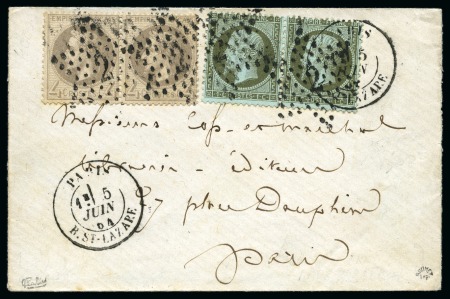 EMPIRE
2
2
POSTES
S
5
LAZARE
Messieurs Cosse et Marchal
Libraires - Editeurs
27 place Dauphine
Paris
PARIS
1E 5
JUIN
64
R. ST-LAZARE